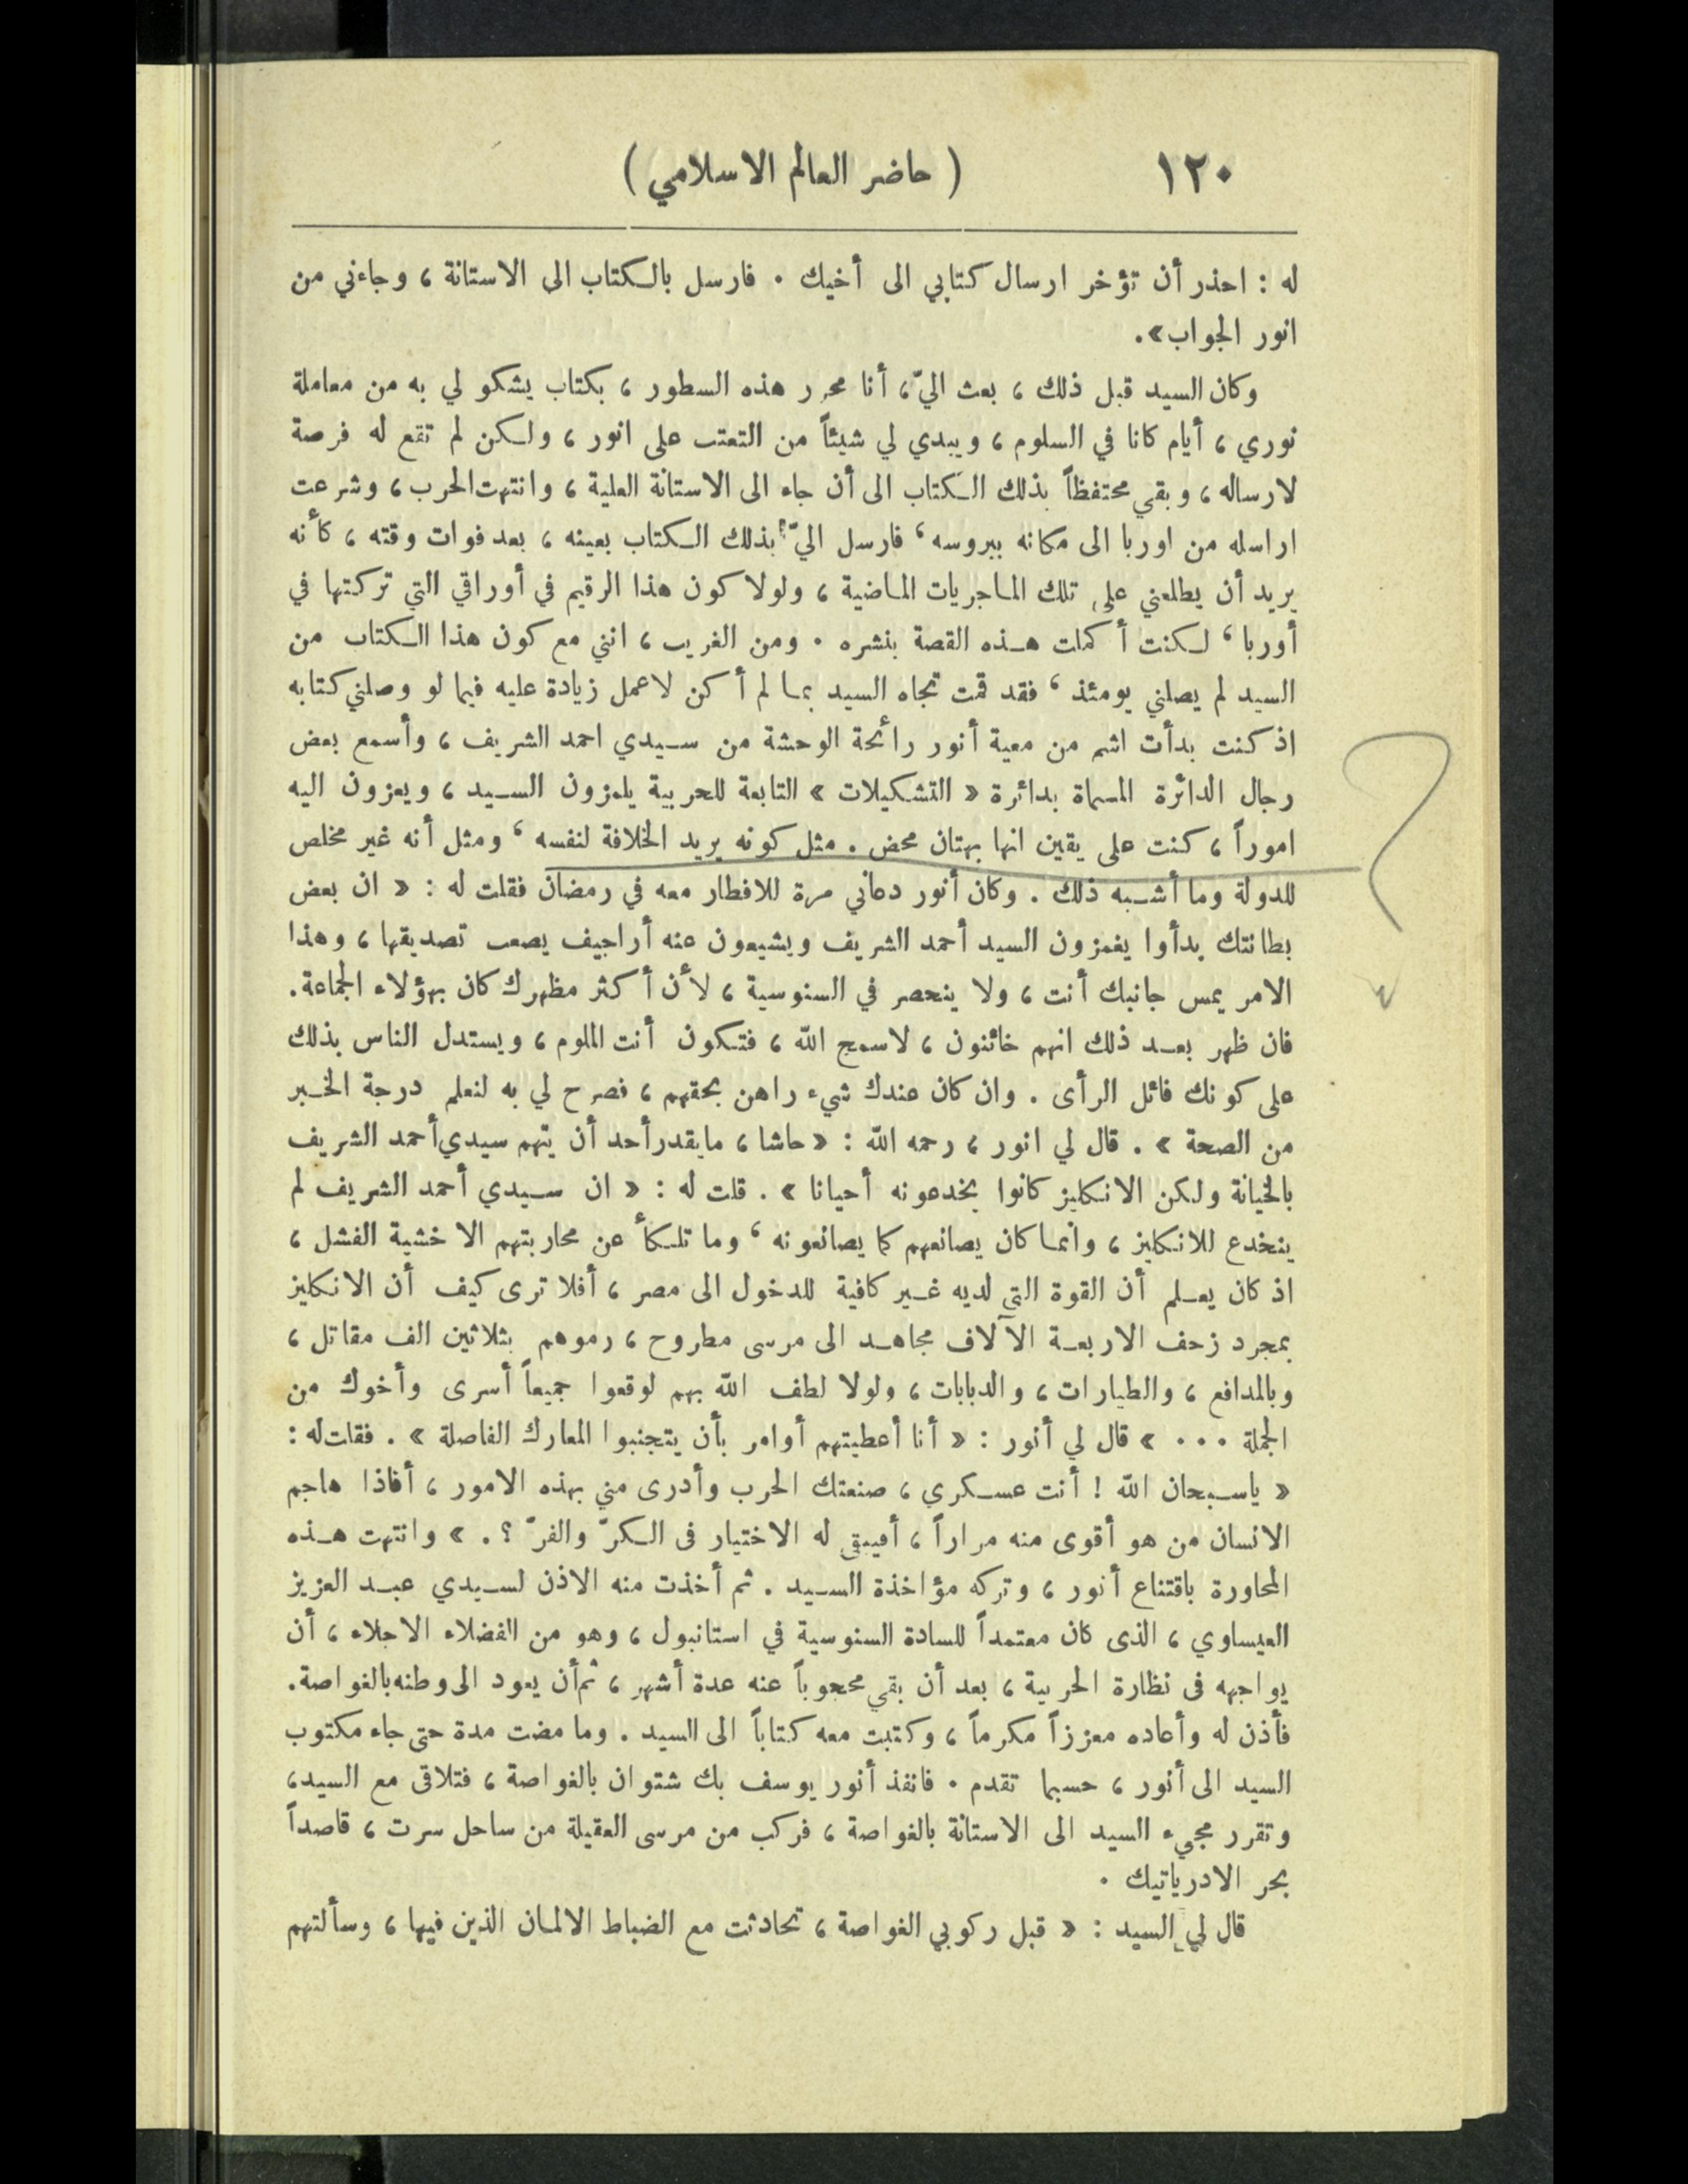 ١٢٠
( حاضر العالم الاسلامي )
له : احذر أن تؤخر ارسال كتابي الى أخيك . فارسل بالكتاب الى الاستانة ، وجاءني من
انور الجواب».
وكان السيد قبل ذلك ، بعث اليّ، أنا محرر هذه السطور ، بكتاب يشكو لي به من معاملة
نوري ، أيام كانا في السلوم ، ويبدي لي شيئاً من التعتب على انور ، ولكن لم تقع له فرصة
لارساله ، وبقي محتفظاً بذلك الكتاب الى أن جاء الى الاستانة العلية ، وانتهت الحرب ، وشرعت
اراسله من اوربا الى مكانه ببروسه ، فارسل اليّ بذلك الكتاب بعينه ، بعد فوات وقته ، كأنه
يريد أن يطلعني على تلك الماجريات الماضية ، ولولا كون هذا الرقيم في أوراقي التي تركتها في
أوربا ، لكنت أكملت هذه القصة بنشره . ومن الغريب ، انني مع كون هذا الكتاب من
السيد لم يصلني يومئذ ، فقد قمت تجاه السيد بما لم أكن لاعمل زيادة عليه فيما لو وصلني كتابه
اذ كنت بدأت اشم من معية أنور رائحة الوحشة من سيدي احمد الشريف ، وأسمع بعض
رجال الدائرة المسماة بدائرة « التشكيلات » التابعة للحربية يلمزون السيد ، ويعزون اليه
اموراً ، كنت على يقين انها بهتان محض . مثل كونه يريد الخلافة لنفسه ، ومثل أنه غير مخلص
للدولة وما أشبه ذلك . وكان أنور دعاني مرة للافطار معه في رمضان فقلت له : « ان بعض
بطانتك بدأوا يغمزون السيد أحمد الشريف ويشيعون عنه أراجيف يصعب تصديقها ، وهذا
الامر يمس جانبك أنت ، ولا ينحصر في السنوسية ، لأن أكثر مظهرك كان بهؤلاء الجماعة.
فان ظهر بعد ذلك انهم خائنون ، لاسمح الله ، فتكون أنت الملوم ، ويستدل الناس بذلك
على كونك فائل الرأى . وان كان عندك شيء راهن بحقهم ، فصرح لي به لنعلم درجة الخبر
من الصحة » . قال لي انور ، رحمه الله : « حاشا ، مايقدر أحد أن يتهم سيدي أحمد الشريف
بالخيانة ولكن الانكليز كانوا يخدعونه أحيانا » . قلت له : « ان سيدي أحمد الشريف لم
ينخدع للانكليز ، وانما كان يصانعهم كما يصانعونه ، وما تلكأ عن محاربتهم الا خشية الفشل ،
اذ كان يعلم أن القوة التي لديه غير كافية للدخول الى مصر ، أفلا ترى كيف أن الانكليز
بمجرد زحف الاربعة الآلاف مجاهد الى مرسى مطروح ، رموهم بثلاثين الف مقاتل ،
وبالمدافع ، والطيارات ، والدبابات ، ولولا لطف الله بهم لوقعوا جميعاً أسرى وأخوك من
الجملة ... » قال لي أنور : « أنا أعطيتهم أوامر بأن يتجنبوا المعارك الفاصلة » . فقلت له :
« ياسبحان الله ! أنت عسكري ، صنعتك الحرب وأدرى مني بهذه الامور ، أفاذا هاجم
الانسان من هو أقوى منه مراراً ، أفيبقى له الاختيار فى الكرّ والفرّ ؟ . » وانتهت هذه
المحاورة باقتناع أنور ، وتركه مؤاخذة السيد . ثم أخذت منه الاذن لسيدي عبد العزيز
العيساوي ، الذى كان معتمداً للسادة السنوسية في استانبول ، وهو من الفضلاء الاجلاء ، أن
يواجهه فى نظارة الحربية ، بعد أن بقي محجوباً عنه عدة أشهر ، ثم أن يعود الى وطنه بالغواصة.
فأذن له وأعاده معززاً مكرماً ، وكتبت معه كتاباً الى السيد . وما مضت مدة حتى جاء مكتوب
السيد الى أنور ، حسبما تقدم . فانفذ أنور يوسف بك شتوان بالغواصة ، فتلاقى مع السيد،
وتقرر مجيء السيد الى الاستانة بالغواصة ، فركب من مرسى العقيلة من ساحل سرت ، قاصداً
بحر الادرياتيك .
قال لي السيد : « قبل ركوبي الغواصة ، تحادثت مع الضباط الالمان الذين فيها ، وسألتهم